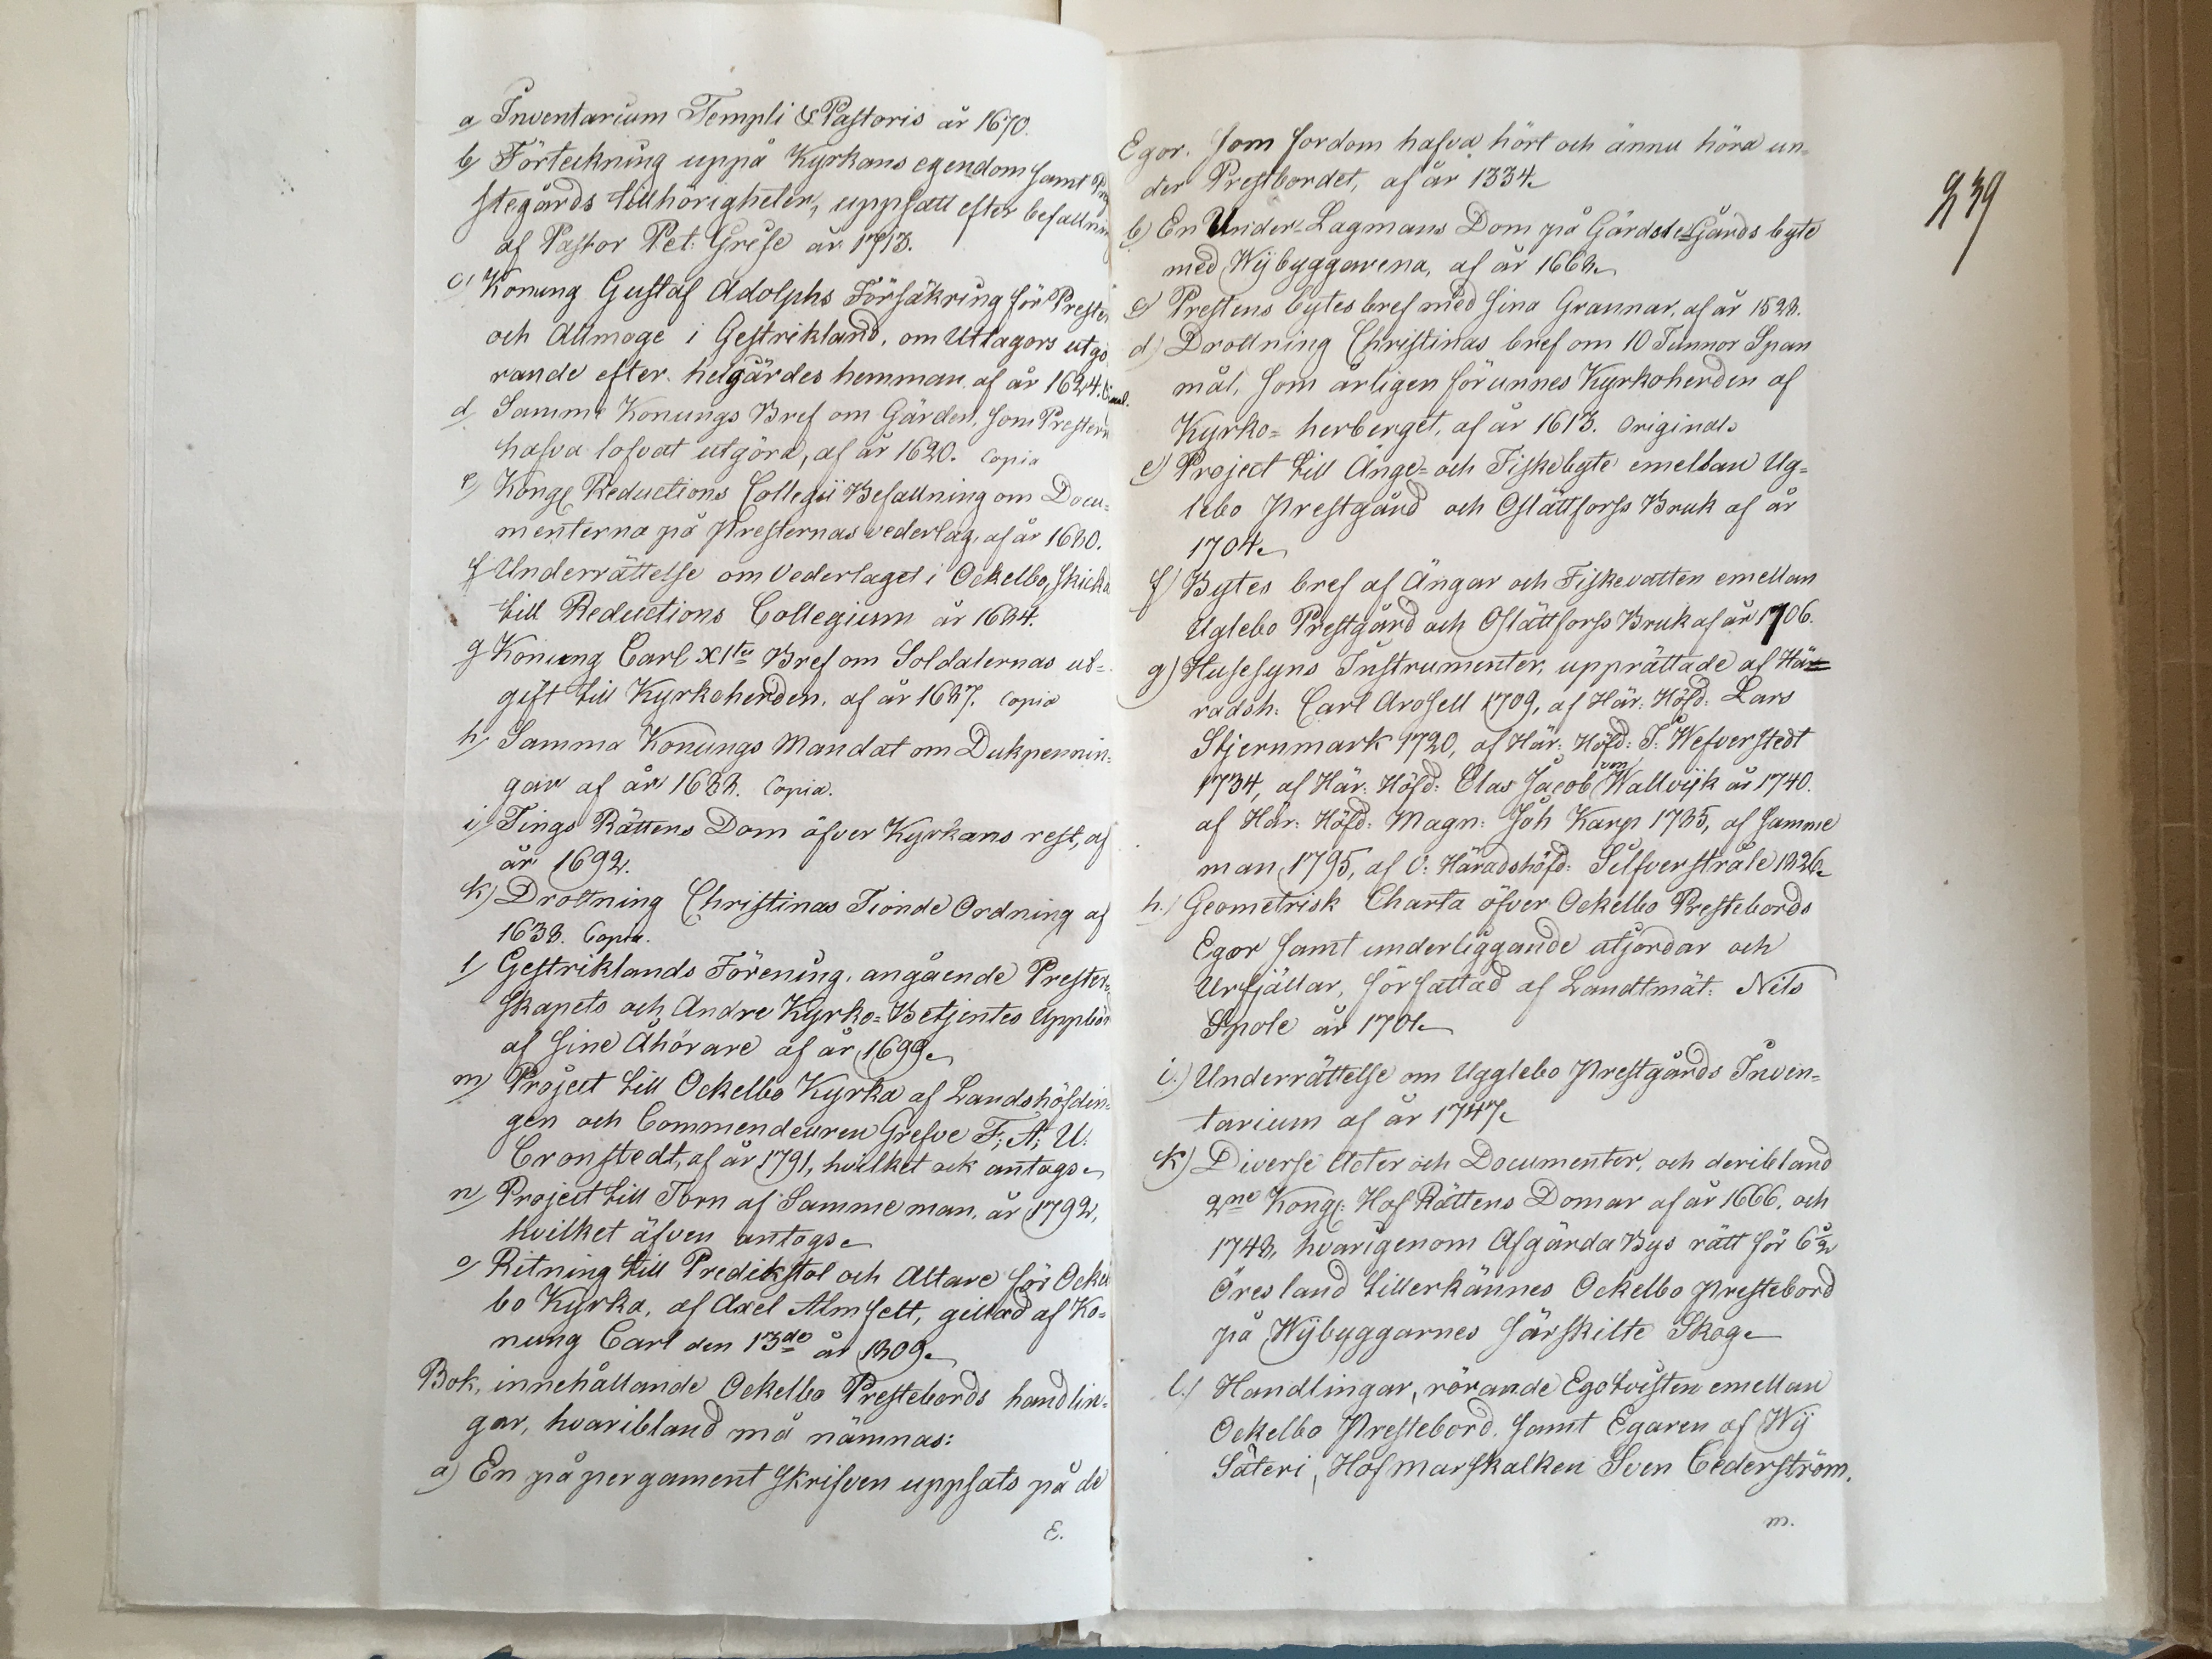 a, Inventarium Templi & Pastoris år 1670.
b, Förteckning uppå Kyrkans egendom samt
stegårds tillhörigheter, uppsatt efter befallnin
af Pastor Pet: Grese år 1713.
c, Konung Gustaf Adolphs Försäkring för Prester
och Allmoge i Gestrikland, om Utlagors utgö
rande efter helgärdes hemman af år 1624.
d, Samme Konungs Bref om Gärden, som Prestern
hafva lofvat utgöra, af år 1620. Copia
e, Kongl Reductions Collegii Befallning om Docu=
menterna på Presternas vederlag, af år 1680.
f, Underrättelse om Vederlaget i Ockelbo, skicka
till Reductions Collegium år 1684.
g, Konung Carl XI:tes Bref om Soldaternas ut=
gift till Kyrkoherden, af år 1687. Copia
h, Samma Konungs Mandat om Dukpennin=
gar af år 1688. Copia.
i, Tings Rättens Dom öfver Kyrkans rest, af
år 1692.
k) Drottning Christinas Tionde Ordning af
1638. Copia.
l, Gestriklands Förening, angående Prester=
skapets och Andre Kyrko=Betjentes Uppbör
af sine Åhörare af år 1699.
m, Project till Ockelbo Kyrka af Landshöfdin=
gen och Commendeuren Grefve F: A: U:
Cronstedt, af år 1791, hvilket ock antogs.
n, Project till Torn af Samme man, år 1792,
hvilket äfven antogs.
o, Ritning till Predikstol och Altare för Ockel
bo Kyrka, af Axel Almfelt, gillad af Ko=
nung Carl den 13de år 1809.
Bok, innehållande Ockelbo Prestebords handlin=
gar, hvaribland må nämnas:
a) En på pergament skrifven uppsats på de
E.
239
Egor. som fordom hafva hört och ännu höra un=
der Prestbordet, af år 1334.
b) En Under=Lagmans Dom på Gärdste=Gårds byte
med Wijbyggarena, af år 1668.
c) Prestens bytesbref med sina Grannar, af år 1528.
d) Drottning Christinas bref om 10 Tunnor Span
mål, som årligen förunnes Kyrkoherden af
Kyrko=herberget, af år 1613. Original.
e) Project till Änge= och Fiskebyte emellan Ug=
lebo Prestgård och Oslättforss Bruk af år
1704.
f) Bytes bref af Ängar och Fiskevatten emellan
Uglebo Prestgård och Oslättforss Bruk af år 1706.
g) Husesyns Instrumenter, upprättade af Hä
radsh: Carl Arosell 1709, af Här: Höfd: Lars
Stjernmark 1720, af Här: Höfd: T: Wefverstedt
1734, af Här: Höfd: Clas Jacob von Wallvijk år 1740.
af Här: Höfd: Magn: Joh Karp 1785, af samme
man 1795, af V: Häradshöfd: Silfverstråle 1826.
h.) Geometrisk Charta öfver Ockelbo Prestebords
Egor samt underliggande utjordar och
Urfjällar, författad af Landtmät: Nils
Spole år 1701.
i.) Underrättelse om Ugglebo Prestgårds Inven=
tarium af år 1747.
k.) Diverse Acter och Documenter, och deribland
2ne Kongl: Hof Rättens Domar af år 1666, och
1748, hvarigenom Afgärda Bys rätt för 6½
Öres land tillerkännes Ockelbo Prestebord
på Wijbyggarnes särskilte Skog.
l.) Handlingar, rörande Egotvisten emellan
Ockelbo Prestebord, samt Egaren af Wij
Säteri, Hofmarskalken Sven Cederström.
m.